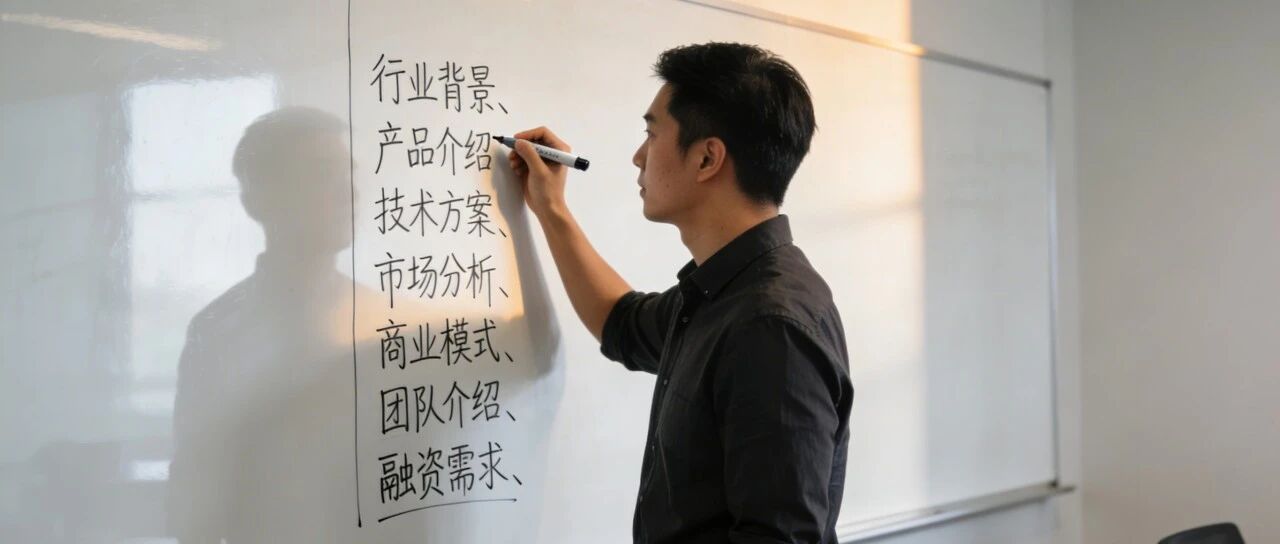 行业背景、
产品介绍
技术方案、
市场分析、
商业模式、
团队介绍、
融资需求、